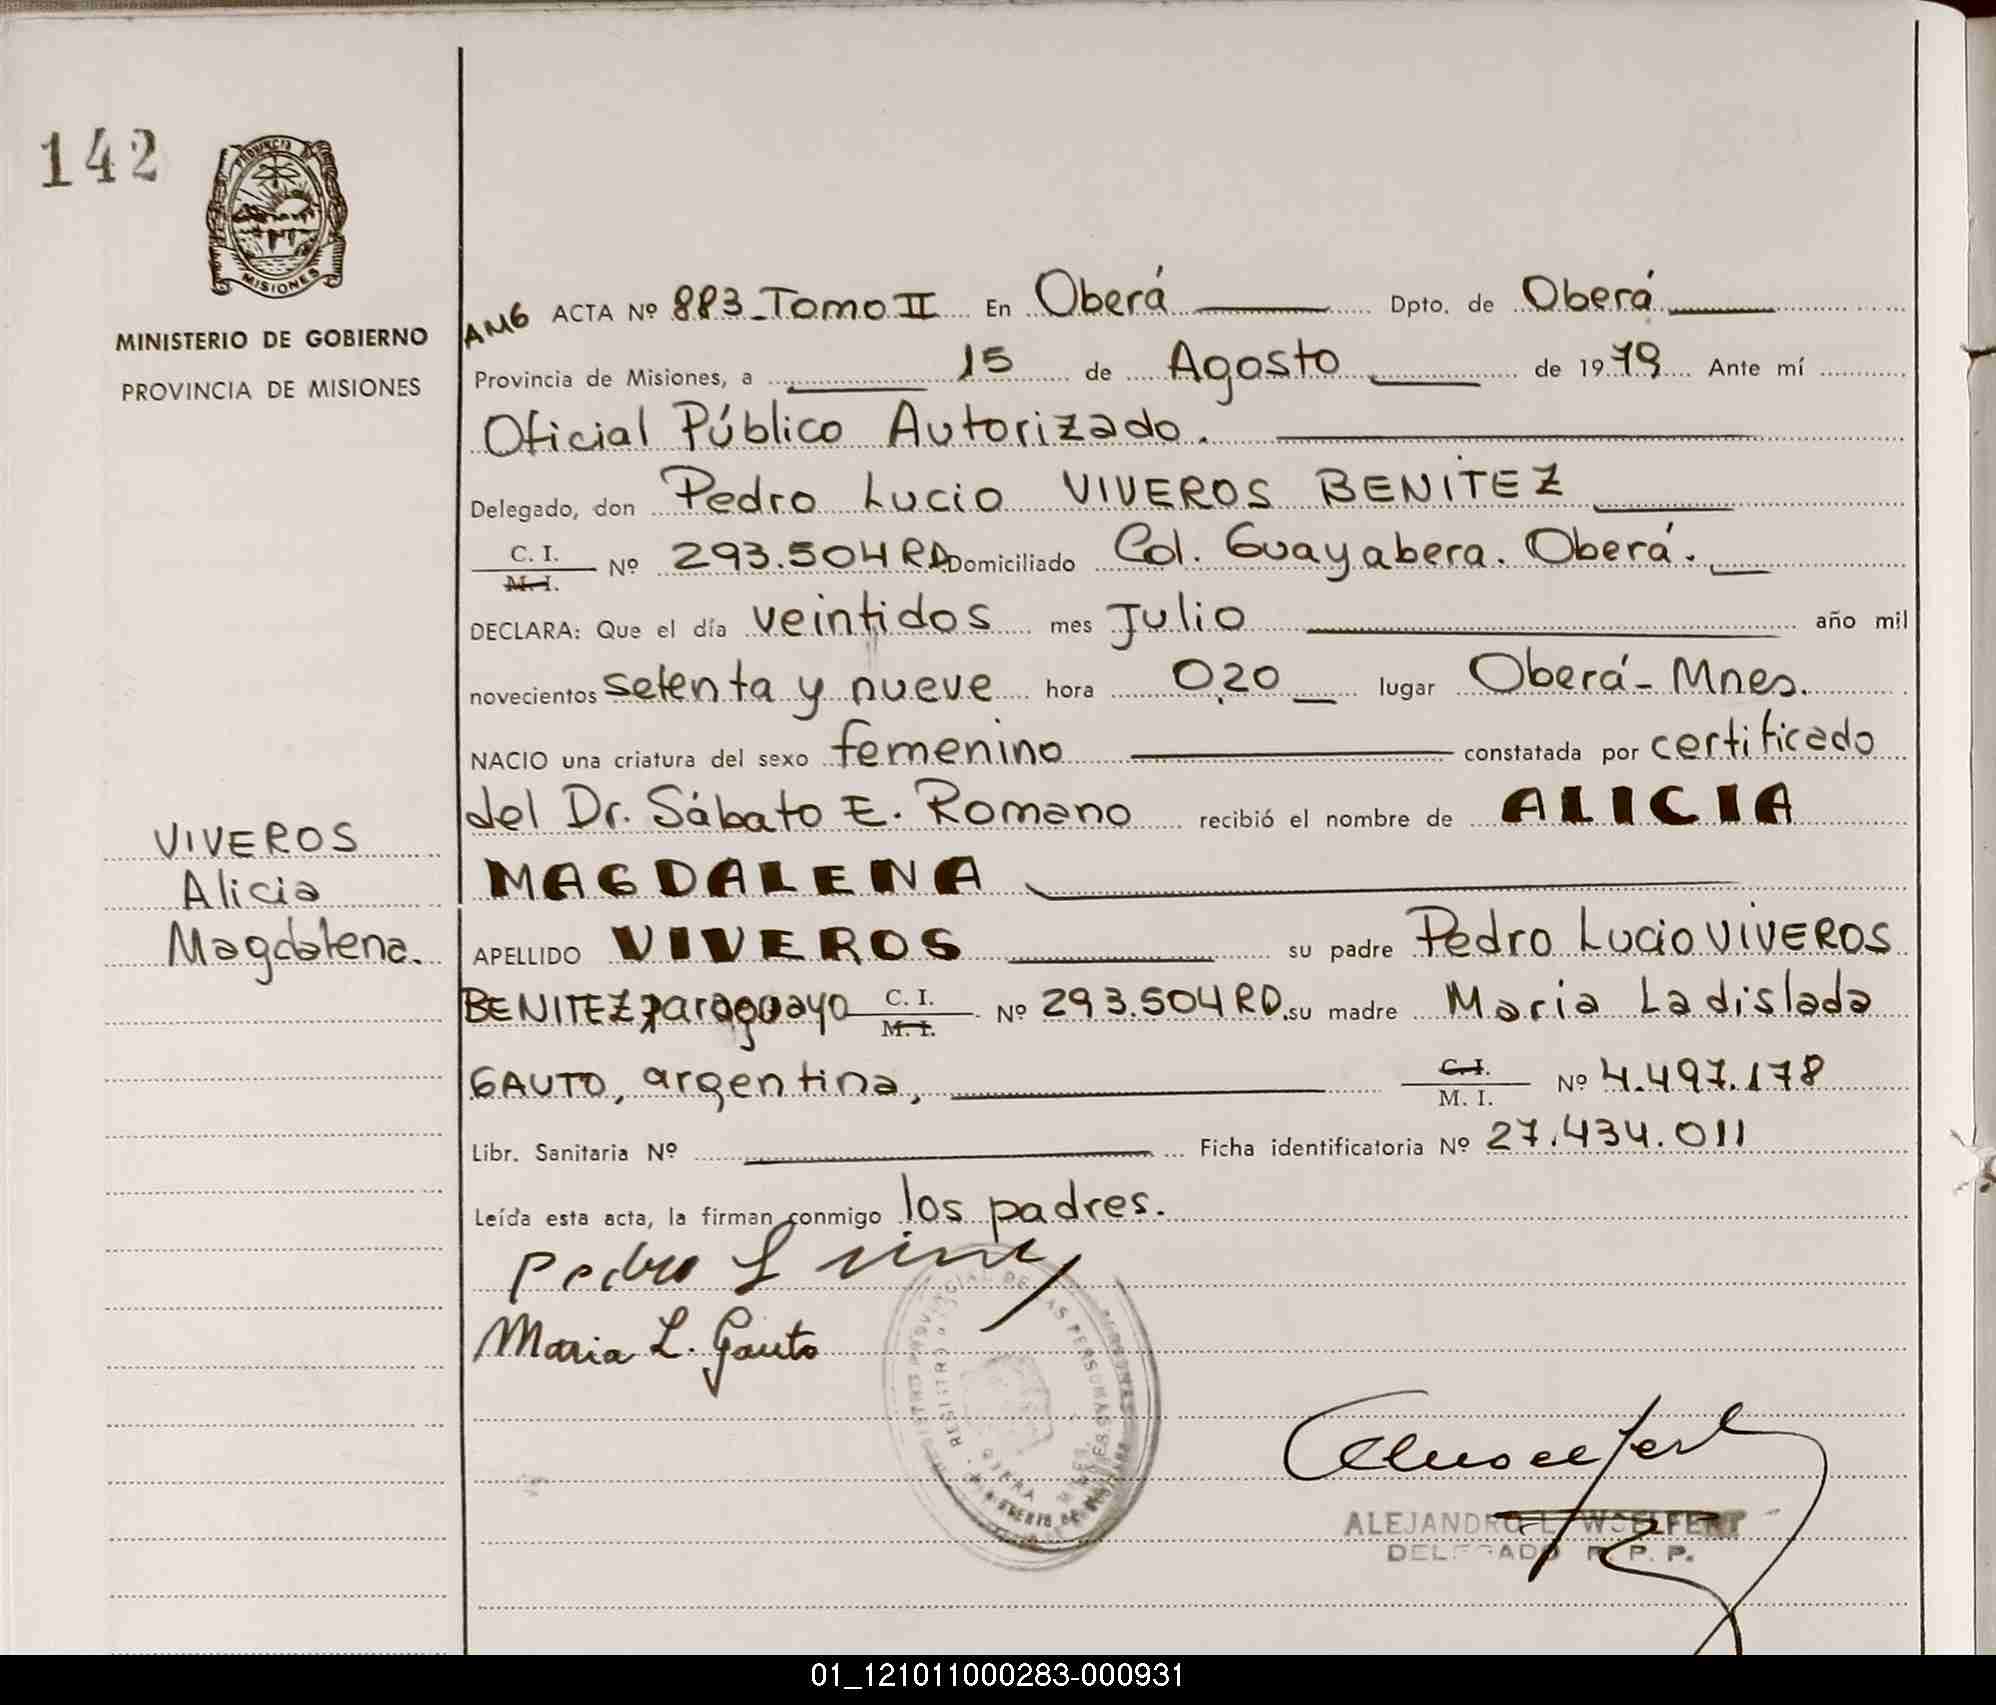 142
PROVINCIA
MISIONES
MINISTERIO DE GOBIERNO
PROVINCIA DE MISIONES
VIVEROS
Alicia
Magdalena.
AMG ACTA Nº 883-Tomo II En Oberá Dpto. de Oberá
Provincia de Misiones, a 15 de Agosto de 1979 Ante mí
Oficial Público Autorizado.
Delegado, don Pedro Lucio VIVEROS BENITEZ
C. I. M. I. Nº 293.504 RD Domiciliado Col. Guayabera. Oberá.
DECLARA: Que el día veintidos mes Julio año mil
novecientos setenta y nueve hora 0,20 lugar Oberá- Mnes.
NACIO una criatura del sexo femenino constatada por certificado
del Dr. Sábato E. Romano recibió el nombre de ALICIA
MAGDALENA
APELLIDO VIVEROS su padre Pedro Lucio VIVEROS
BENITEZ, paraguayo C. I. M. I. Nº 293.504 RD. su madre Maria Ladislada
GAUTO, argentina, C. I. M. I. Nº 4.497.178
Libr. Sanitaria Nº Ficha identificatoria Nº 27.434.011
Leída esta acta, la firman conmigo los padres.
Pedro L
Maria L. Gauto
ALEJANDRO L. WOELFERT
DELEGADO R. P. P.
01_121011000283-000931